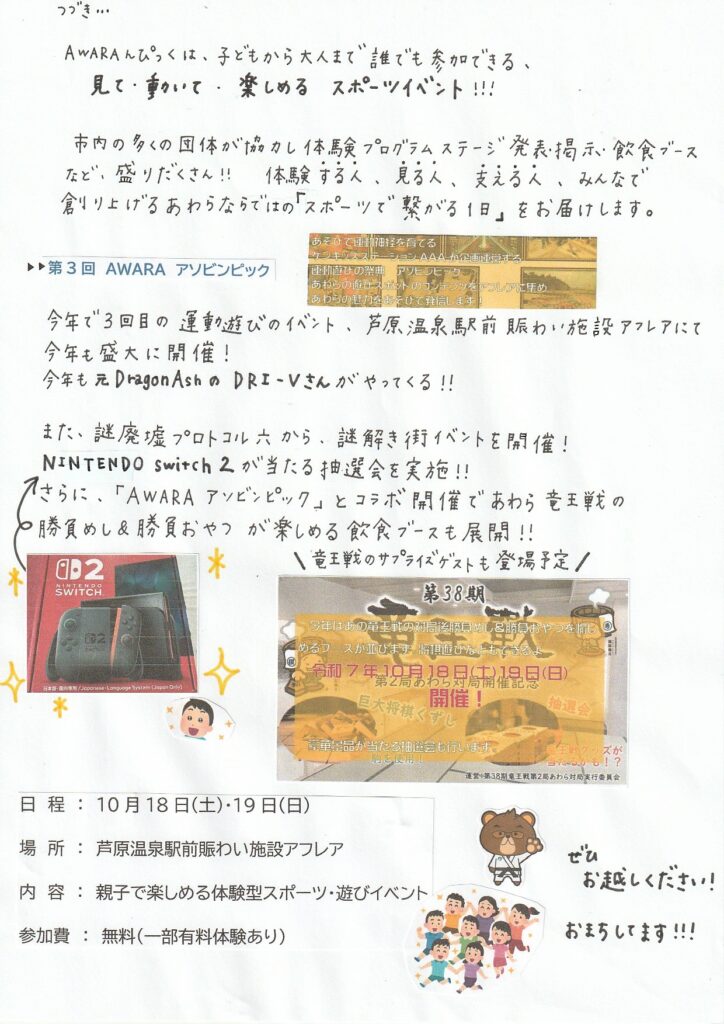 つづき…
AWARAんぴっくは、子どもから大人まで誰でも参加できる、
見て・動いて・楽しめる スポーツイベント!!!
市内の多くの団体が協力し体験プログラムステージ発表・掲示・飲食ブース
など、盛りだくさん!! 体験する人、見る人、支える人、みんなで
創り上げるあわらならではの「スポーツで繋がる1日」をお届けします。
▶▶第3回 AWARA アソビンピック
あそびで運動神経を育てる
ケンキンズステーションAAAが企画運営する
運動遊びの祭典 アソビンピック
あわらの遊びスポットのコンテンツをアフレアに集め
あわらの魅力をあそびで発信します!
今年で3回目の運動遊びのイベント、芦原温泉駅前賑わい施設アフレアにて
今年も盛大に開催!
今年も元DragonAshのDRI-Vさんがやってくる!!
また、謎廃墟プロトコル六から、謎解き街イベントを開催!
NINTENDO switch2が当たる抽選会を実施!!
さらに、「AWARA アソビンピック」とコラボ開催であわら竜王戦の
勝負めし&勝負おやつ が楽しめる飲食ブースも展開!!
\竜王戦のサプライズゲストも登場予定/
2
NINTENDO
SWITCH
日本語・国内専用/Japanese-Language System (Japan Only)
第38期
今年はあの竜王戦の対局後勝負めし&勝負おやつを愉し
めるブースが並びます 将棋遊びなどもできるよ
令和7年10月18日(土)19日(日)
第2局あわら対局開催記念
開催!
巨大将棋くずし
抽選会
豪華景品が当たる抽選会も行います
竜王戦グッズが
当たるかも!?
運営:第38期竜王戦第2局あわら対局実行委員会
日 程 : 10月18日(土)・19日(日)
場 所 : 芦原温泉駅前賑わい施設アフレア
内 容 : 親子で楽しめる体験型スポーツ・遊びイベント
参加費 : 無料(一部有料体験あり)
ぜひ
お越しください!
おまちしてます!!!